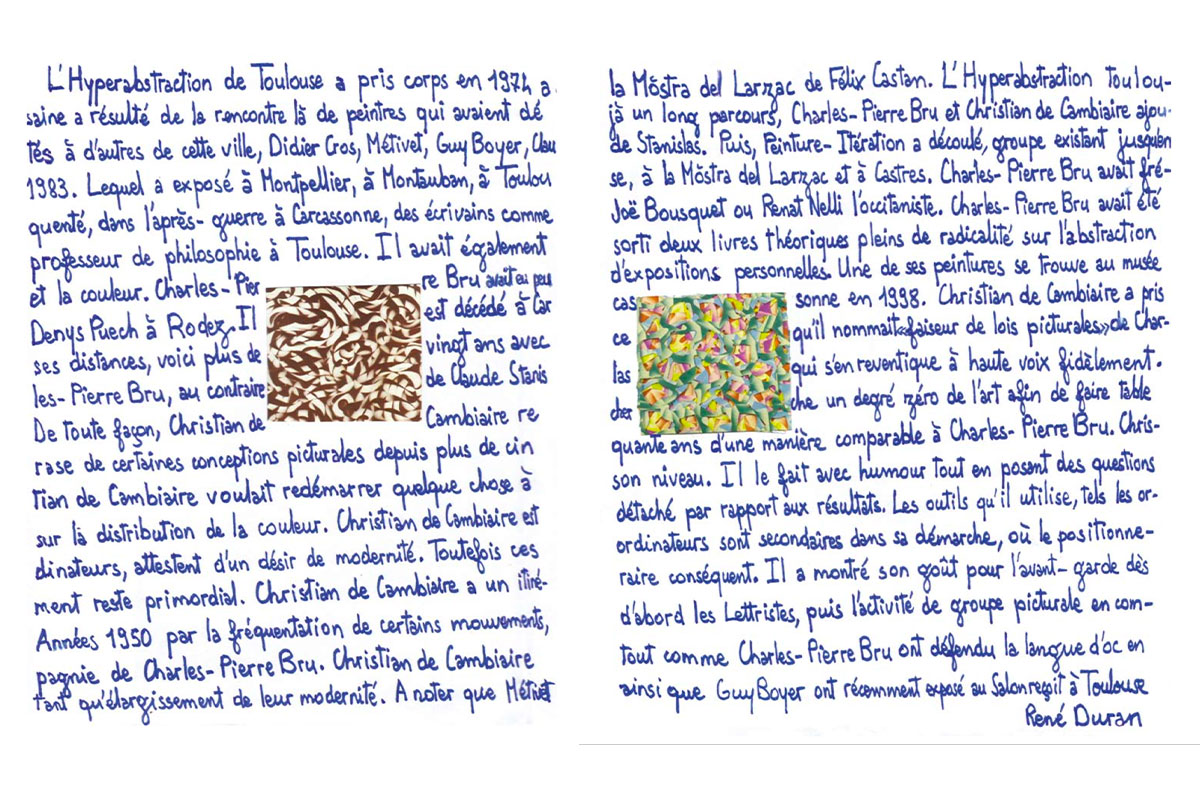 L'Hyperabstraction de Toulouse a pris corps en 1974 a
la Möstra del Larzac de Félix Castan. L'Hyperabstraction toulou-
saine a résulté de la rencontre là de peintres qui avaient dé
jà un long parcours, Charles-Pierre Bru et Christian de Cambiaire ajou-
tés à d'autres de cette ville, Didier Cros, Métivet, Guy Boyer, Clau
de Stanislas. Puis, Peinture-Itération a découlé, groupe existant jusqu'en
1983. Lequel a exposé à Montpellier, à Montauban, à Toulou
se, à la Möstra del Larzac et à Castres. Charles-Pierre Bru avait fré-
quenté, dans l'après-guerre à Carcassonne, des écrivains comme
Joë Bousquet ou Renat Nelli l'occitaniste. Charles-Pierre Bru avait été
professeur de philosophie à Toulouse. Il avait également
sorti deux livres théoriques pleins de radicalité sur l'abstraction
et la couleur. Charles-Pier re Bru avait eu peu
d'expositions personnelles. Une de ses peintures se trouve au musée
Denys Puech à Rodez. Il est décédé à Car
cas sonne en 1998. Christian de Cambiaire a pris
ses distances, voici plus de vingt ans avec
ce qu'il nommait «faiseur de lois picturales» de Char-
les-Pierre Bru, au contraire de Claude Stanis
las qui s'en reventique à haute voix fidèlement.
De toute façon, Christian de Cambiaire re
cher che un degré zéro de l'art afin de faire table
rase de certaines conceptions picturales depuis plus de cin
quante ans d'une manière comparable à Charles-Pierre Bru. Chris-
tian de Cambiaire voulait redémarrer quelque chose à
son niveau. Il le fait avec humour tout en posant des questions
sur la distribution de la couleur. Christian de Cambiaire est
détaché par rapport aux résultats. Les outils qu'il utilise, tels les or-
dinateurs, attestent d'un désir de modernité. Toutefois ces
ordinateurs sont secondaires dans sa démarche, où le positionne-
ment reste primordial. Christian de Cambiaire a un itiné-
raire conséquent. Il a montré son goût pour l'avant-garde dès
Années 1950 par la fréquentation de certains mouvements,
d'abord les Lettristes, puis l'activité de groupe picturale en com-
pagnie de Charles-Pierre Bru. Christian de Cambiaire
tout comme Charles-Pierre Bru ont défendu la langue d'oc en
tant qu'élargissement de leur modernité. A noter que Métivet
ainsi que Guy Boyer ont récemment exposé au Salon reçoit à Toulouse
René Duran